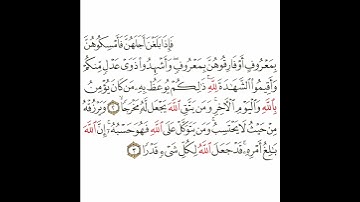 فَإِذَا بَلَغْنَ أَجَلَهُنَّ فَأَمْسِكُوهُنَّ
بِمَعْرُوفٍ أَوْ فَارِقُوهُنَّ بِمَعْرُوفٍ وَأَشْهِدُوا۟ ذَوَىْ عَدْلٍ مِّنكُمْ
وَأَقِيمُوا۟ الشَّهَٰدَةَ لِلَّهِ ۚ ذَٰلِكُمْ يُوعَظُ بِهِۦ مَن كَانَ يُؤْمِنُ
بِاللَّهِ وَالْيَوْمِ الْـَٔاخِرِ ۚ وَمَن يَتَّقِ اللَّهَ يَجْعَل لَّهُۥ مَخْرَجًا ٢ وَيَرْزُقْهُ
مِنْ حَيْثُ لَا يَحْتَسِبُ ۚ وَمَن يَتَوَكَّلْ عَلَى اللَّهِ فَهُوَ حَسْبُهُۥٓ ۚ إِنَّ اللَّهَ
بَٰلِغُ أَمْرِهِۦ ۚ قَدْ جَعَلَ اللَّهُ لِكُلِّ شَىْءٍ قَدْرًا ٣